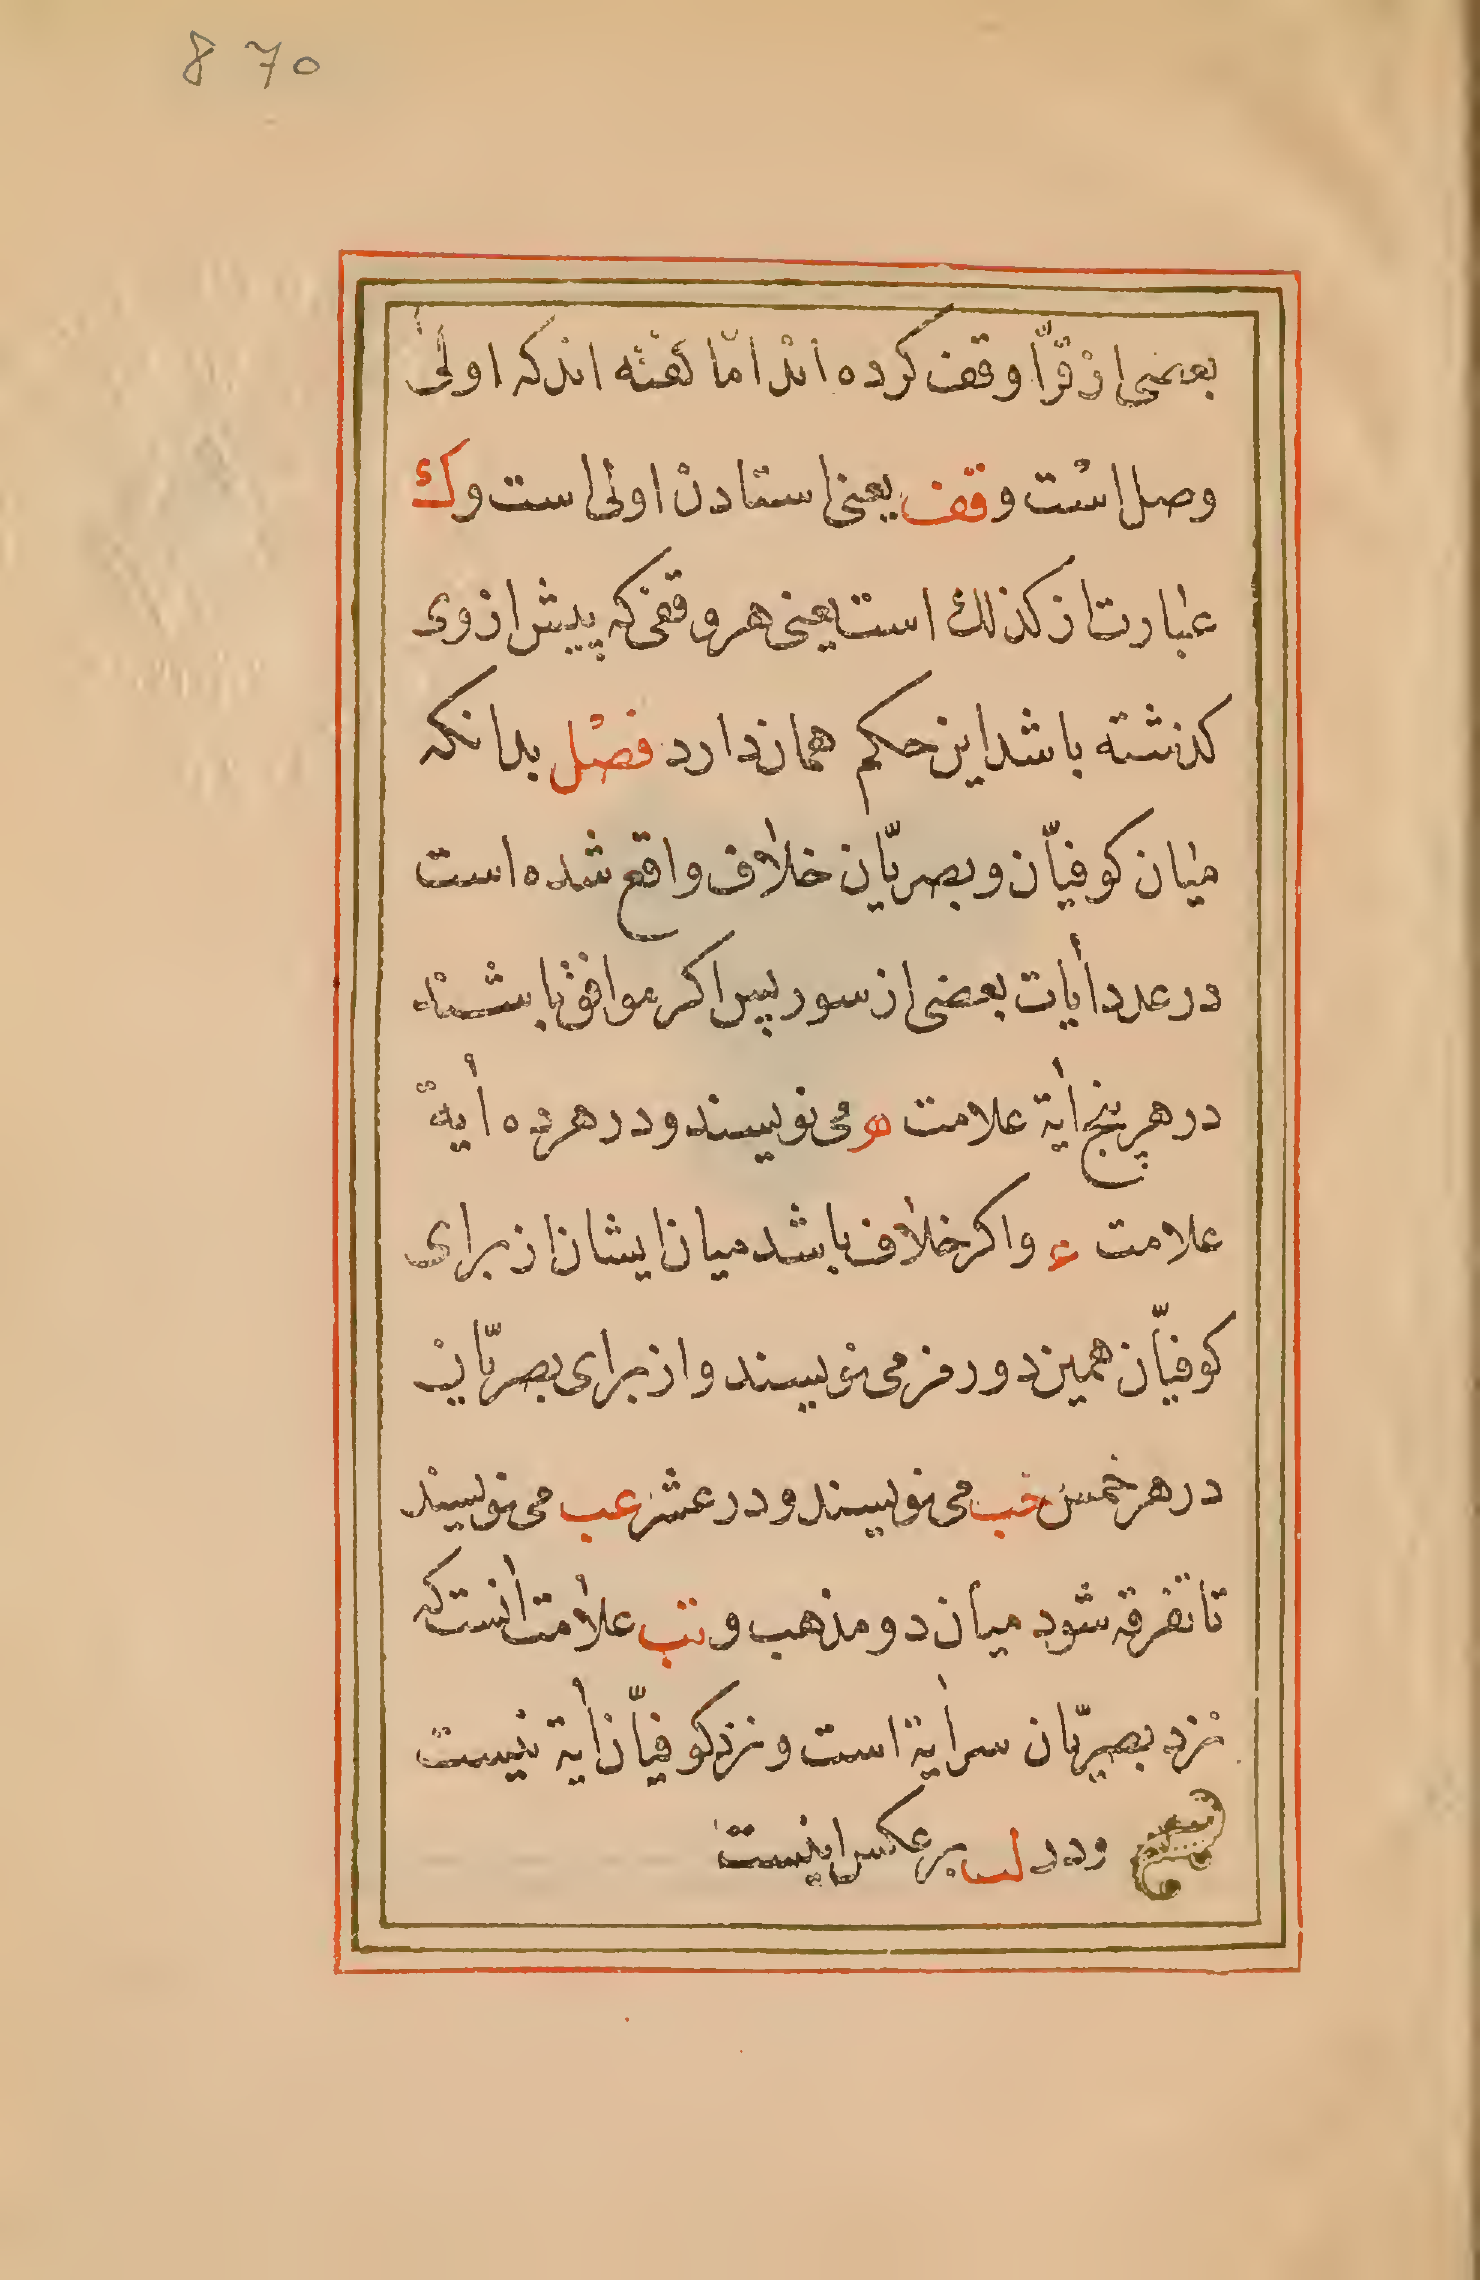 870
بعضی از قرّا وقف کرده اند امّا کفته اند که اولیٰ
وصل است و قف یعنی استادن اولی است و ك
عبارت از کذلك است یعنی هر وقفی که پیش از وی
کذشته باشد این حکم همان دارد فصل بدانکه
میان کوفیّان و بصریّان خلاف واقع شده است
در عدد أیات بعضی از سور پس اکر موافق باشند
در هر پنج أیة علامت ه می نویسند و در هر ده أیة
علامت ع واکر خلاف باشد میان ایشان از برای
کوفیّان همین دو رمز می نویسند و از برای بصریّان
در هر خمس خب می نویسند و در عشر عب می نویسند
تا تفرقه شود میان دو مذهب و تب علامت أنست که
نزد بصریّان سرأیة است و نزد کوفیّان أیة نیست
ودر لب بر عکس اینست